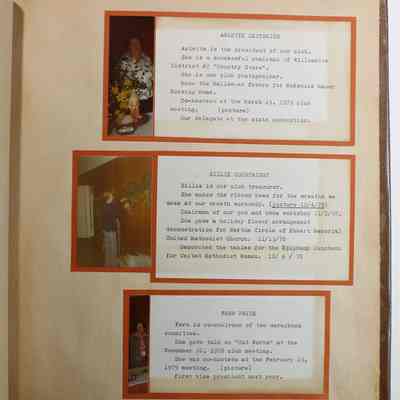 Arlette is the president of our club.
She is a successful chairman of Willamette
District #2 "Country Store".
She is our club photographer.
Made the Hallowe'en favors for
Nursing Home.
Co-hostess at the March 23, 1979 club
meeting. (picture)
Our delegate at the state convention.
BILLIE
Billie is our club treasurer.
She makes the ribbon bows for the wreaths we
made at our wreath workshop. (picture 12/4/78)
Chairman of our pod and cone workshop
She gave a holiday flower arrangement
demonstration for Martha Circle of Memorial
United Methodist Church. 11/13/78
Decorated the tables for the Luncheon
for United Methodist Women.
FERN PRICE
Fern is co-chairman of the
committee.
She gave talk on "Old Books" at the
November 1978 club meeting.
She was co-hostess at the February 23,
1979 meeting. (picture)
First vice president next year.